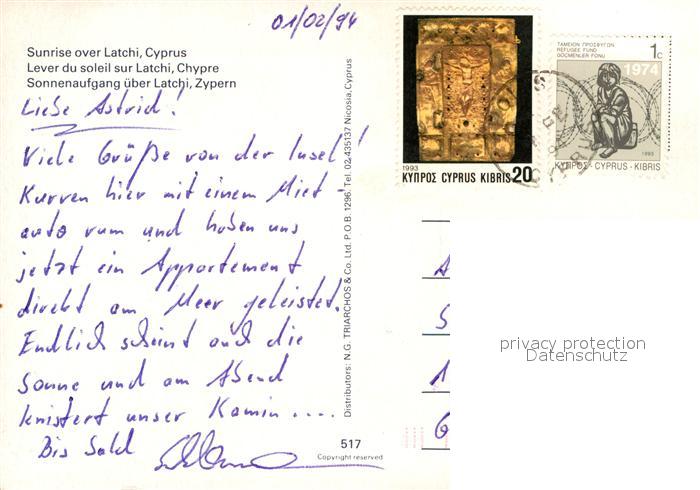 01/02/94
Sunrise over Latchi, Cyprus
Lever du soleil sur Latchi, Chypre
Sonnenaufgang über Latchi, Zypern
Liebe Astrid!
Viele Grüße von der Insel!
Kurven hier mit einem Miet-
auto rum und haben uns
jetzt ein Appartement
direkt am Meer geleistet.
Endlich scheint auch die
Sonne und am Abend
knistert unser Kamin....
Bis bald
517
Copyright reserved
Distributors: N.G. TRIARCHOS & Co. Ltd. P.O.B. 1296, Tel. 02-435137 Nicosia, Cyprus
1993
ΚΥΠΡΟΣ CYPRUS KIBRIS 20
ΤΑΜΕΙΟΝ ΠΡΟΣΦΥΓΩΝ
REFUGEE FUND
GÖÇMENLER FONU
1c
1974
1993
ΚΥΠΡΟΣ-CYPRUS-KIBRIS
A
S
1
G
privacy protection
Datenschutz